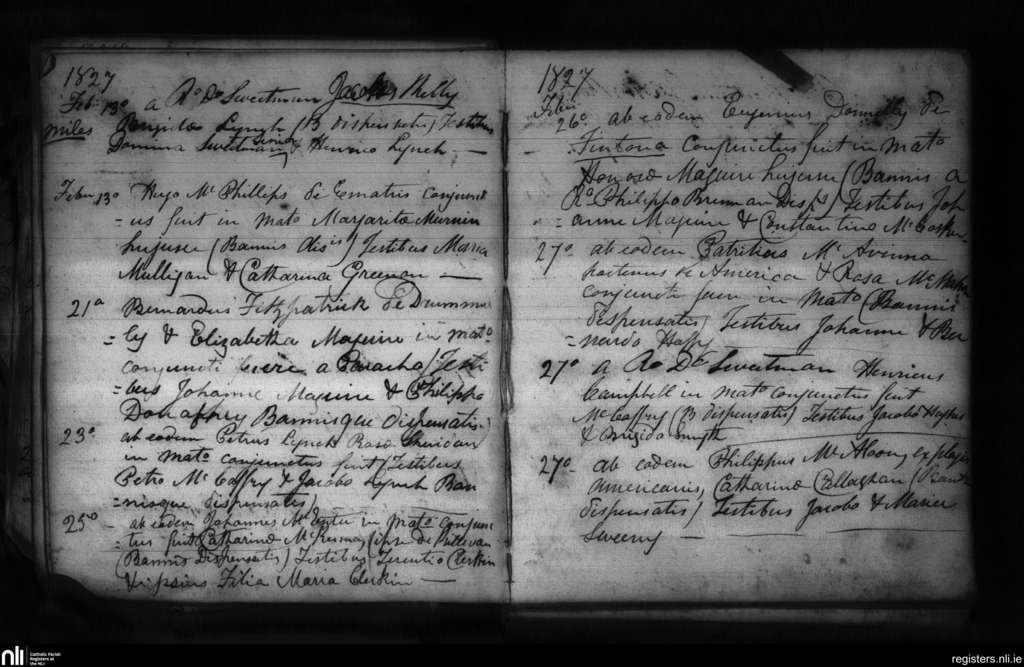 1827
Feb: 13º a Rº Dº Sweetman Jacobus Kelly
miles Brigidæ Lynch (B dispensatis) Testibus
Domina Sweetman & Henrico Lynch —
Febr 13º Hugo Mc Phillips de Ematris conjunct
= us fuit in matº Margarita
hujusce (Bannis disis) Testibus Maria
Mulligan & Catharina Greenan —
21ª Bernardus Fitzpatrick de Drummu
= ly & Elizabetha Maguire in matº
conjuncti fuere a Parocho (Testi
= bus Johanne Maguire & Philippo
Bannisque dispensatis)
23º ab eodem Petrus Lynch Rosæ Sheridan
in matº conjunctus fuit (Testibus
Petro Mc Caffry & Jacobo Lynch Ban
= nisque dispensatis)
25º - ab eodem Johannes Mc in matº conjunc
tus fuit Catharinæ Mc de
(Bannis Dispensatis) Testibus Terentio Clerkin
& ipsius Filia Maria Clerkin —
1827
Febr:
26º ab eodem Eugenius Donnelly de
- Fintona Conjunctus fuit in matº
Honoræ Maguire hujusce (Bannis a
Rº Philippo Brennan Disp) Testibus Joh
anne Maguire & Constantino Mc
27º ab eodem Patritius Mc
de America & Rosa Mc Mahon
conjuncti fuere in matº (Bannis
dispensatis) Testibus Johanne & Ber
= nardo Haffy
27º a Rº Dº Sweetman Henricus
Campbell in matº conjunctus fuit
Mc Caffry (B dispensatis) Testibus Jacobo Hughes
& Brigida Smyth
27º ab eodem Philippus Mc
Americanis, Catharinæ Callaghan (Bannis
dispensatis) Testibus Jacobo & Maria
Sweeny —
nli Catholic Parish
Registers at
the NLI
registers.nli.ie